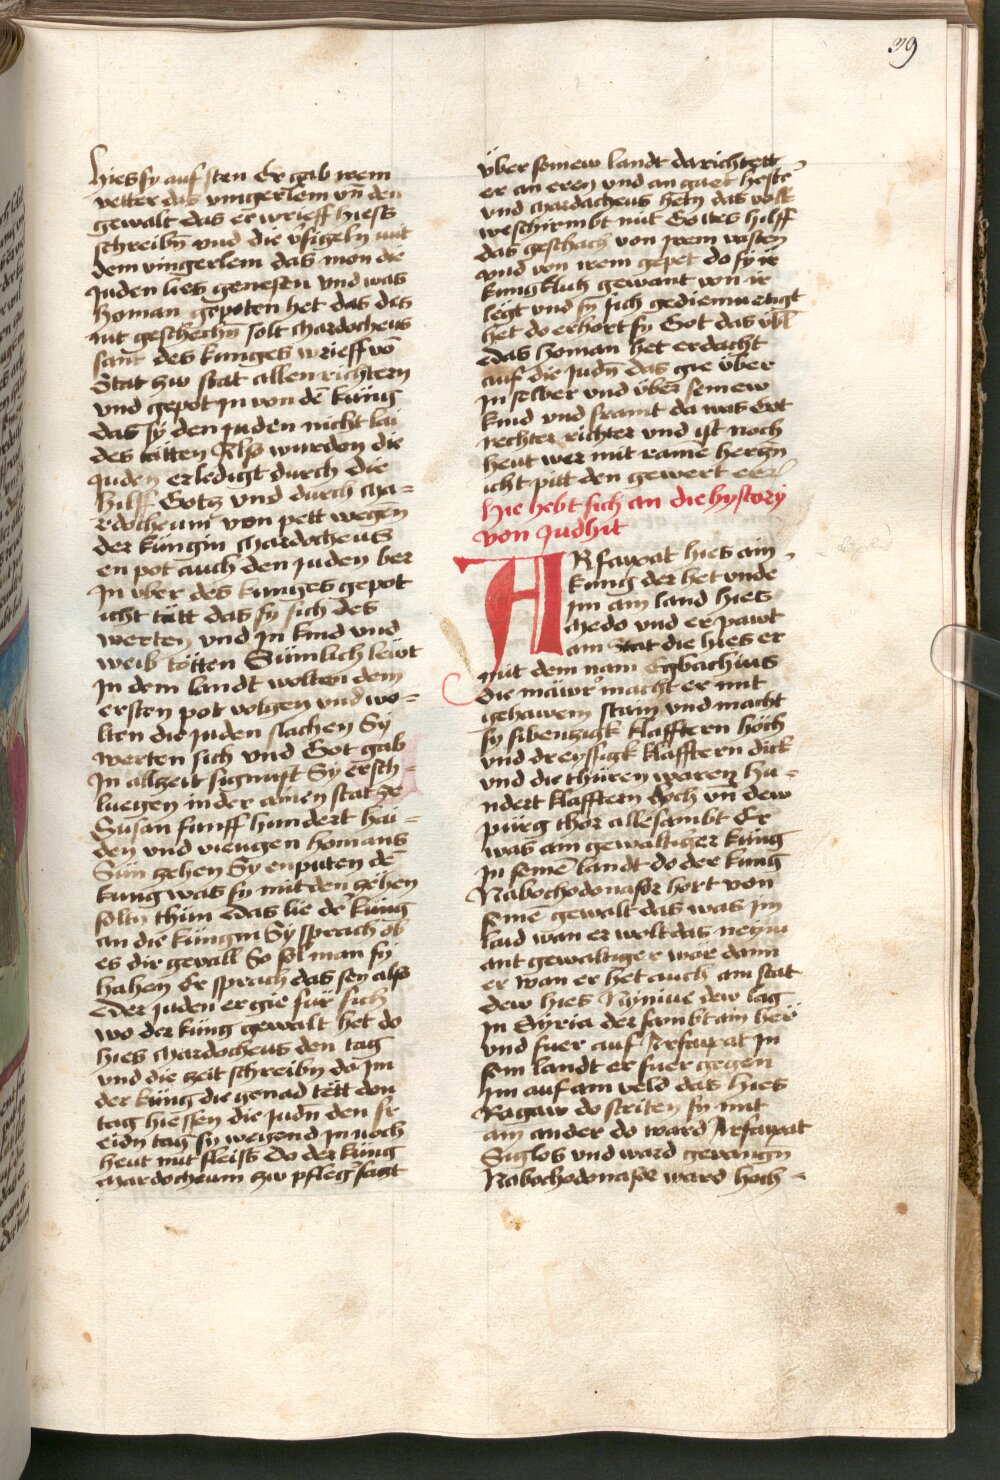 39
hies sy auf sten Er gab irem
vetter das vingerlein vñ den
gewalt das er wrieff hiess
schreibñ vnd die v̈sigeln mit
dem vingerlein das mon die
Juden lies genesen vnd was
homan gepoten het das des
nit geschechñ solt Mardocheus
sant des kuniges wrieff võ
Stat zw stat allen richtern
vnd gepot jn von dẽ küng
das sy den juden nicht lai
des tätten Also wurden die
Juden erledigt durch die
hilff Gotz vnd durch Ma=
rdocheum von pett wegen
der küngin Mardocheus
en pot auch den juden ber
In vber des kuniges gepot
icht tätt das sy sich des
werten vnd jn kind vnd
weib tötten Sümlich lewt
In dem landt wolten dem
ersten pot volgen vnd wo=
lten die juden slachen Sy
werten sich vnd Got gab
In allzeit signuft Sy ersch
luegen in der ainen stat ze
Susan funff hundert hai=
den vnd viengen homans
Sün zehen Sy enputen dẽ
kung was sy mit den zehen
soltn thün das lie der küng
an die küngin Sy sprach ob
es dir gevall So sol man sy
hahen Er sprach das sey also
Der juden er gie für sich
wo der küng gewalt het do
hies Mardocheus den tag
vnd die zeit schreibñ do jm
der küng die genad tëtt den
tag hiessen die judñ den fr
eidñ tag sy weyend jn noch
heut mit fleiss Do der küng
Mardocheum zw pfleger saczt
über seinew landt da richtett
er an eren vnd an guet hester
vnd Mardacheus hetñ das volk
weschirmbt mit Gottes hilff
das geschach von irem vasten
vnd von irem gepet do sy ir
kungklich gewant von ir
legt vnd sy sich gediemuetigt
het do erhort sy Got das v̈bl
das homan het erdacht
auf die judñ das gie über
jn selber vnd über seinew
kind vnd framt da was Got
rechter richter vnd ist noch
heut wer mit rainẽ herczñ
icht pitt den gewert er
Hie hebt sich an die hystory
von Judhit
ARfaxat hies ain
kung der het vnde
im ain land hies
Medo vnd er pawt
ain Stat die hies er
mit dem nam Egbachius
Die mäwr macht er mit
gehawem stain vnd macht
sy sibenczigk klafftern höch
vnd dreyssigk klafftern dick
vnd die thüren waren hu=
ndert klafftern hoch vñ dew
pürg thor allesambt Er
was ain gewaltiger küng
Jn seinẽ landt do der kung
Nabochodonasor hort von
seine gewalt das was im
laid wan er wolt das neym
ant gewaltiger wär dann
er wan er het auch ain stat
dew hies Nyniue dew lag
in Syria der sambt ain her
vnd fuer auf Arfaxat jn
sein landt er fuer gegen
im auf ain veld das hies
Ragaw do striten sy mit
ain ander do ward Arfaxat
Siglos vnd ward gevangñ
Nabochodonasor ward hoch